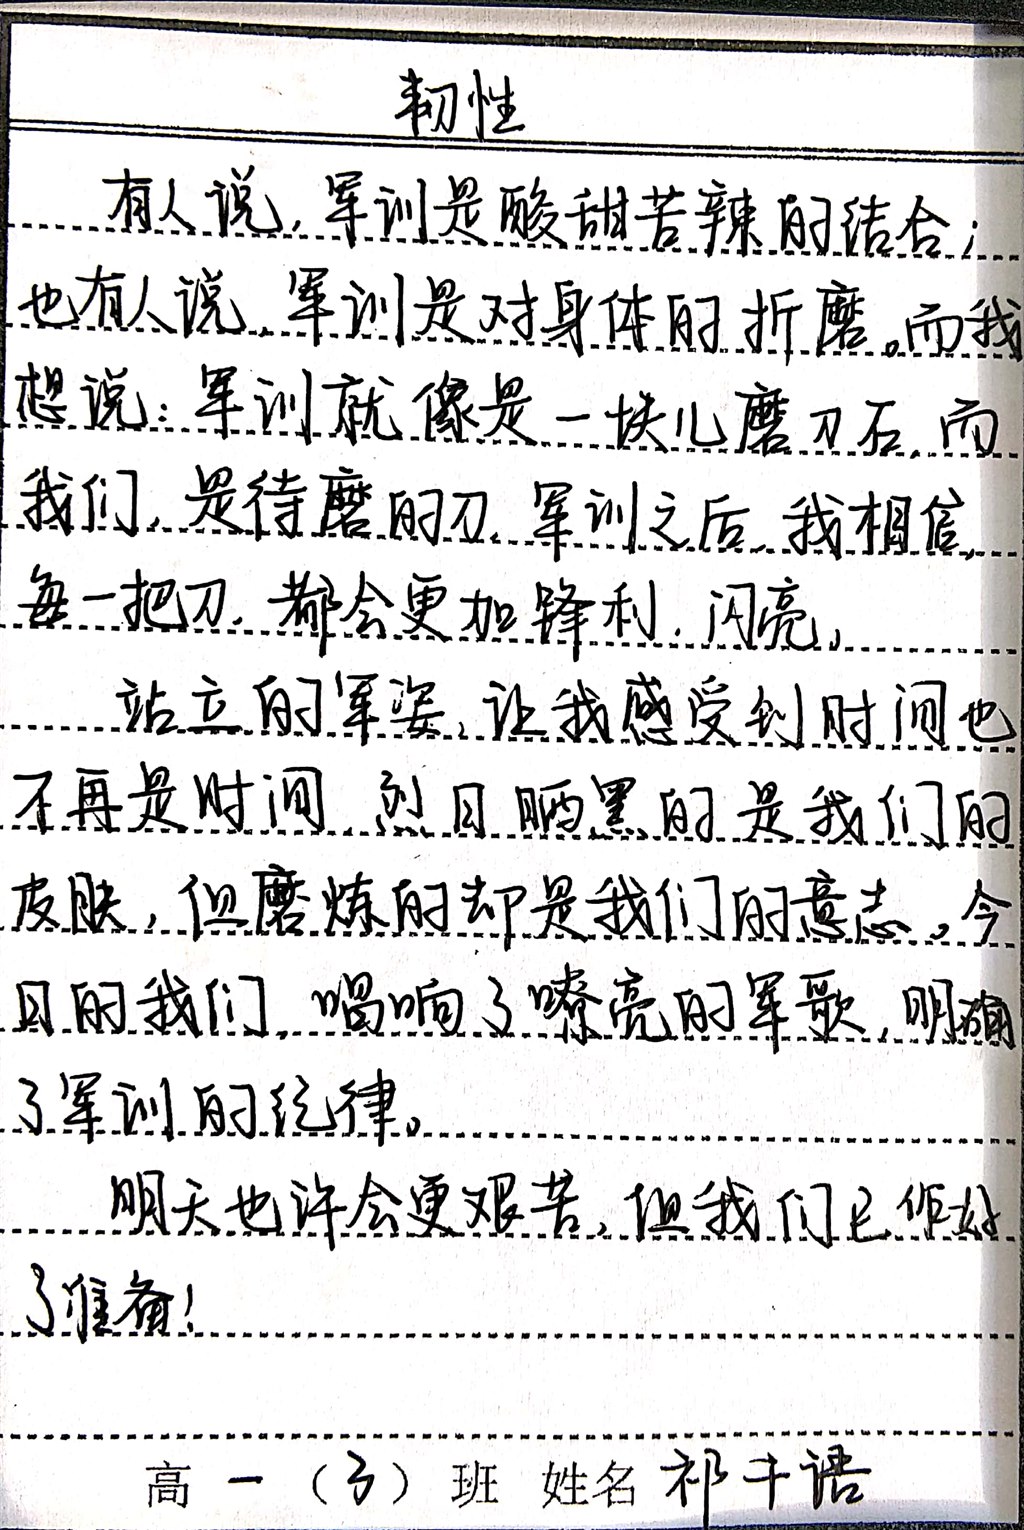 韧性
有人说,军训是酸甜苦辣的结合;
也有人说,军训是对身体的折磨。而我
想说:军训就像是一块儿磨刀石,而
我们,是待磨的刀,军训之后,我相信,
每一把刀,都会更加锋利,闪亮。
站立的军姿,让我感受到时间也
不再是时间,烈日晒黑的是我们的
皮肤,但磨炼的却是我们的意志。今
日的我们,唱响了嘹亮的军歌,明确
了军训的纪律。
明天也许会更艰苦,但我们已作好
了准备!
高一(3)班 姓名 祁千语